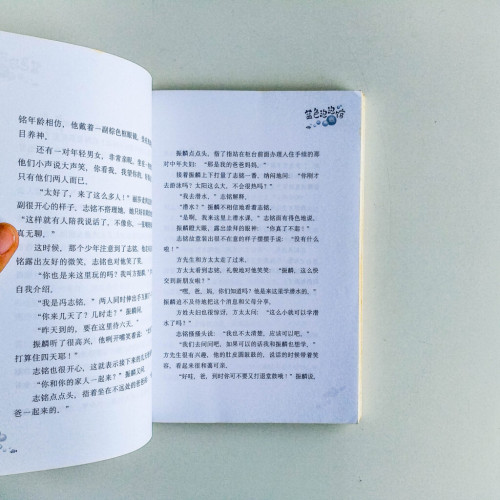 铭年龄相仿，他戴着一副棕色框眼镜，
目养神。
还有一对年轻男女，非常亲昵，
他们小声说大声笑，你看我，我望你的，
只有他们两人而已。
“太好了，来了这么多人！”
副很开心的样子，志铭不搭理她，
“这样就有人陪我说话了，不像你，
真无聊。”
这时候，那个少年注意到了志铭，
铭露出友好的微笑，志铭也对他笑了笑。
“你也是来这里玩的吗？我叫方振麟，”
自我介绍。
“我是冯志铭。”两人同时伸出手互握了
“你来几天了？几时走？”振麟问。
“昨天到的，要在这里待六天。”
振麟听了很高兴，他咧开嘴笑着说：
打算住四天耶！”
志铭也很开心，这就表示接下来的
“你和你的家人一起来？”振麟又问。
志铭点点头，指着坐在不远处的爸爸
爸一起来的。”
蓝色泡泡情
振麟点点头，指了指站在柜台前面办理入住手续的那
对中年夫妇：“那是我的爸爸妈妈。”
接着振麟上下打量了志铭一番，纳闷地问：“你刚才
去游泳吗？太阳这么大，不会很热吗？”
“我去潜水。”志铭解释。
“潜水？”振麟不相信地看着志铭。
“是啊，我来这里上潜水课。”志铭面有得色地说。
振麟瞪大眼，露出崇拜的眼神：“你真了不起！”
志铭故意装出很不在意的样子摆摆手说：“没有什么
啦！”
方先生和方太太走了过来。
方太太看到志铭，礼貌地对他笑笑：“振麟，这么快
交到新朋友啦？”
“嘿，爸、妈，你们知道吗？他是来这里学潜水的。”
振麟迫不及待地把这个消息和父母分享。
方姓夫妇也很惊讶，方太太问：“这么小就可以学潜
水了吗？”
志铭搔搔头说：“我也不太清楚，应该可以吧。”
“我们去问问吧，如果可以的话我和振麟也想学。”
方先生很有兴趣，他的肚皮圆滚滚的，说话的时候带着笑
容，看起来很和蔼可亲。
“好哇，爸，到时你可不要又打退堂鼓哦！”振麟说，